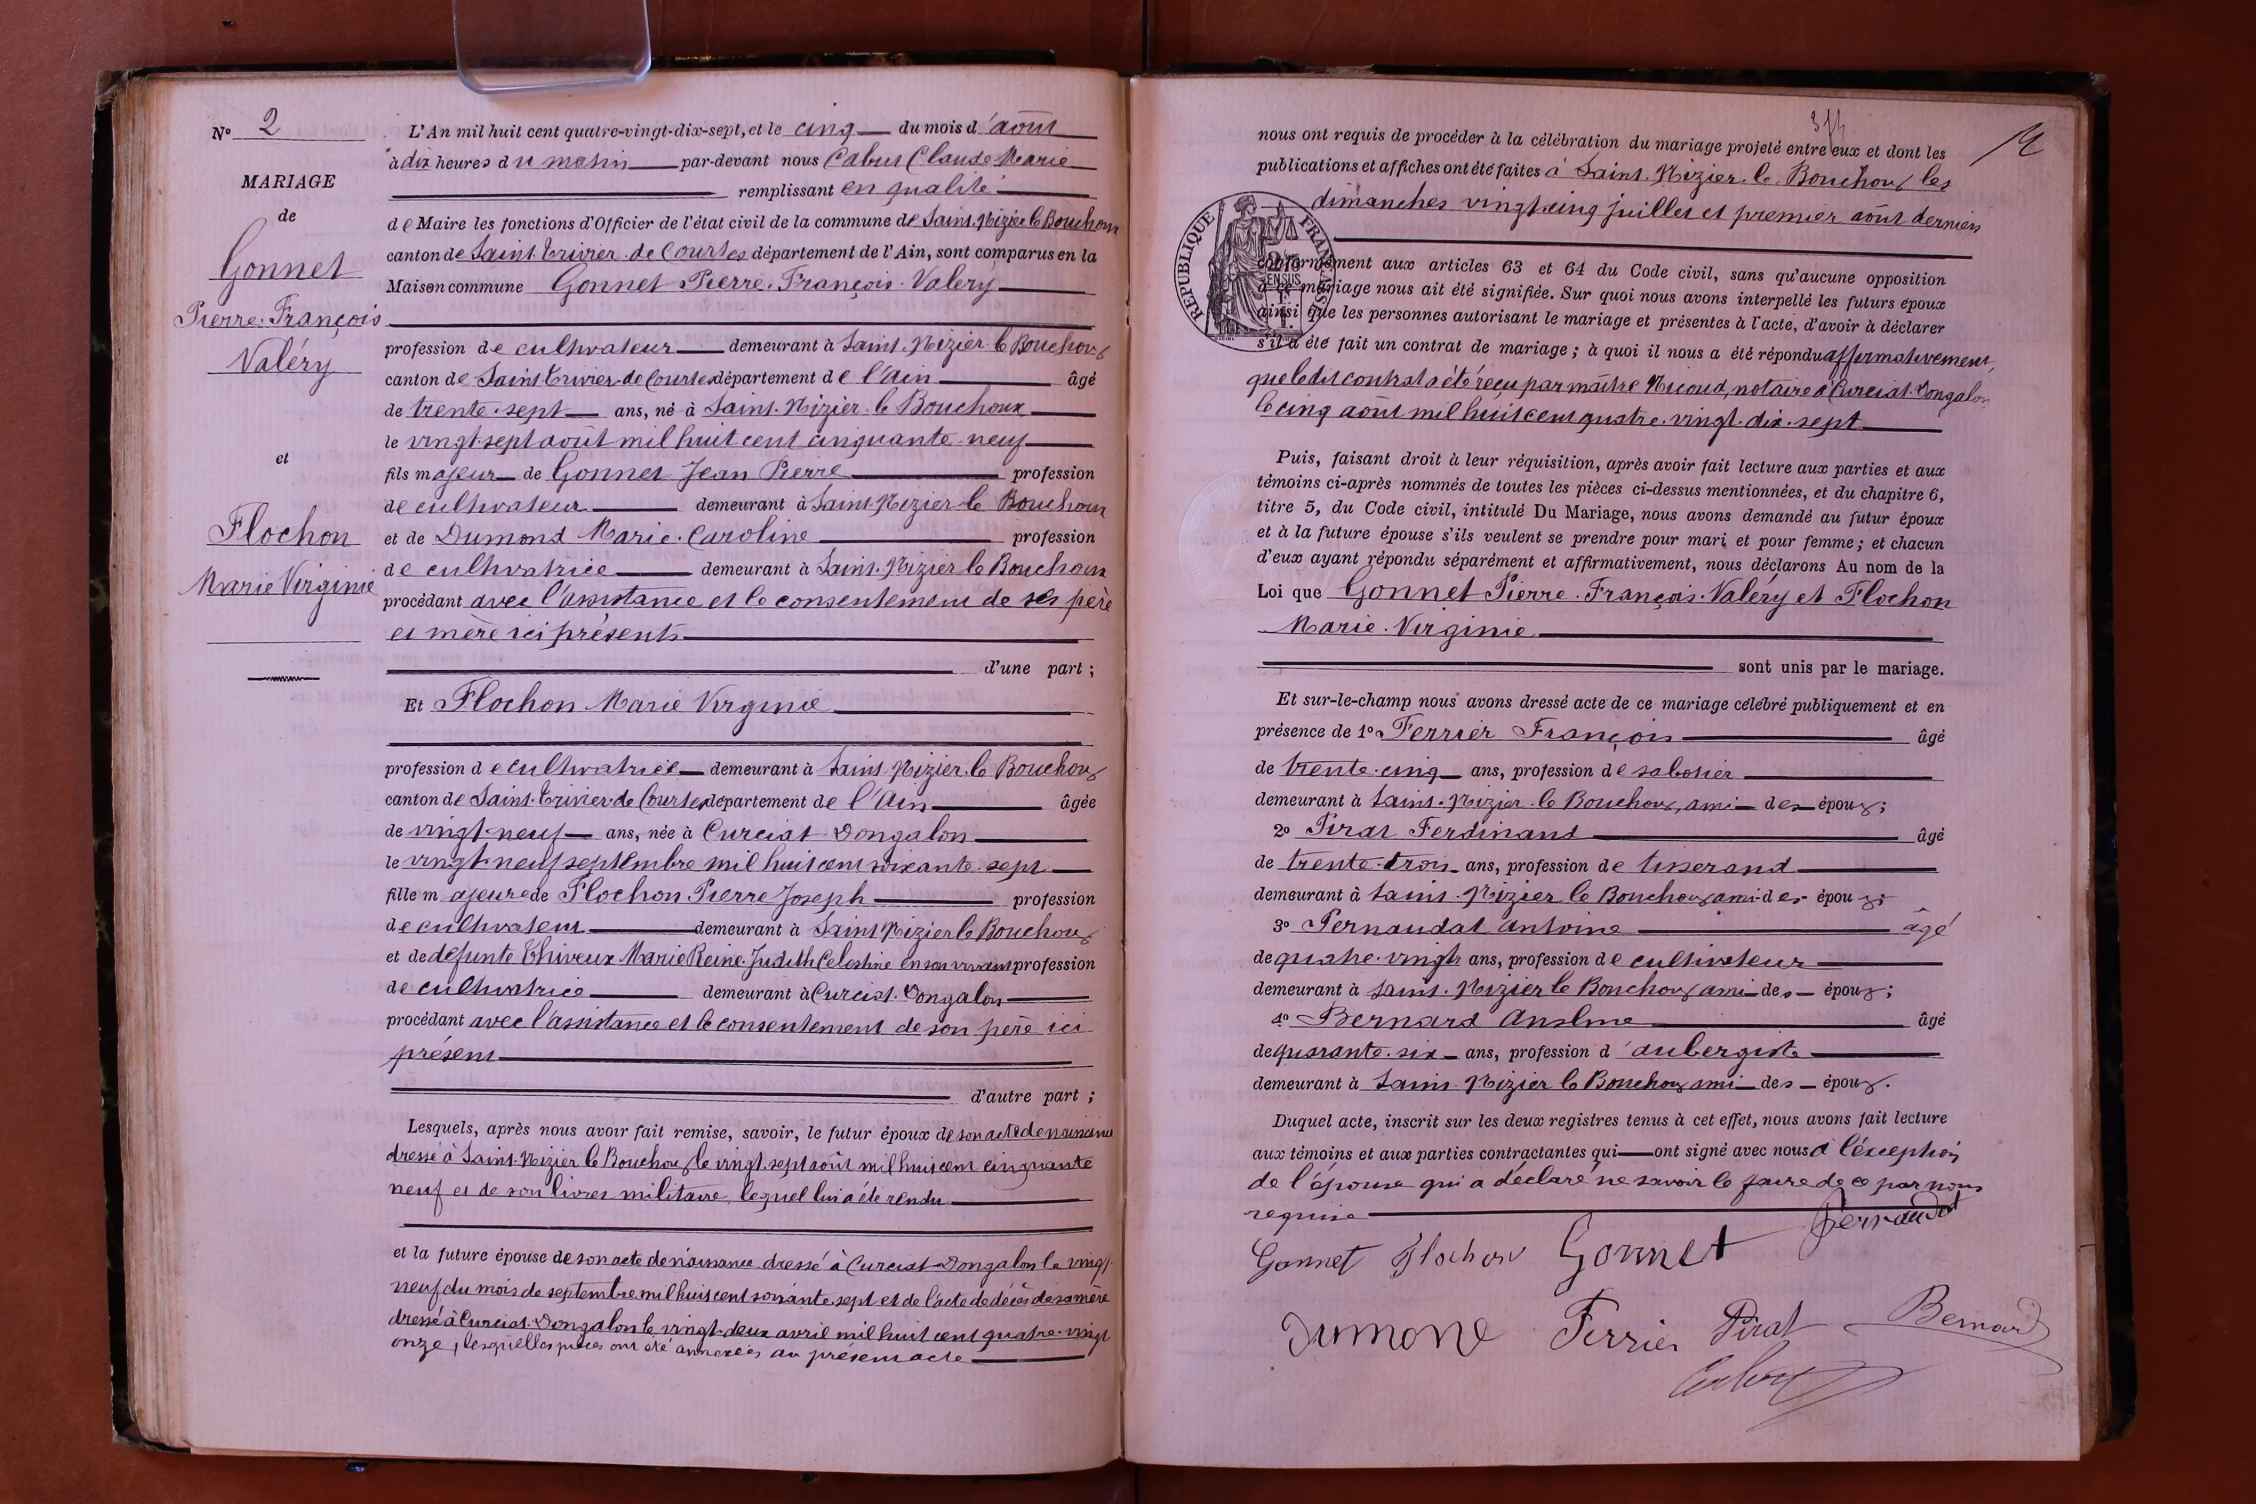 N° 2
MARIAGE
de
Gonnet
Pierre. François
Valéry
et
Flochon
Marie Virginie
L'An mil huit cent quatre-vingt-dix-sept, et le cinq du mois d'août
à dix heures du matin par-devant nous Cabut Claude Marie
remplissant en qualité
de Maire les fonctions d'Officier de l'état civil de la commune de Saint. Nizier le Bouchoux
canton de Saint. Trivier de Courtes département de l'Ain, sont comparus en la
Maison commune Gonnet Pierre. François. Valéry
profession de cultivateur demeurant à Saint. Nizier le Bouchoux
canton de Saint Trivier de Courtes département de l'Ain âgé
de trente. sept ans, né à Saint. Nizier le Bouchoux
le vingt. sept août mil huit cent cinquante. neuf
fils majeur de Gonnet Jean Pierre profession
de cultivateur demeurant à Saint. Nizier le Bouchoux
et de Dumond Marie. Caroline profession
de cultivatrice demeurant à Saint. Nizier le Bouchoux
procédant avec l'assistance et le consentement de ses père
et mère ici présents
d'une part ;
Et Flochon Marie Virginie
profession de cultivatrice demeurant à Saint. Nizier. le Bouchoux
canton de Saint. Trivier. de Courtes département de l'Ain âgée
de vingt. neuf ans, née à Curciat Dongalon
le vingt. neuf septembre mil huit cent soixante. sept
fille majeure de Flochon Pierre Joseph profession
de cultivateur demeurant à Saint Nizier le Bouchoux
et de défunte Thiveux Marie Reine. Judith Celestine en son vivant profession
de cultivatrice demeurant à Curciat. Dongalon
procédant avec l'assistance et le consentement de son père ici
présent
d'autre part ;
Lesquels, après nous avoir fait remise, savoir, le futur époux de son acte de naissance
dressé à Saint. Nizier le Bouchoux le vingt. sept août mil huit cent cinquante
neuf et de son livret militaire, lequel lui a été rendu
et la future épouse de son acte de naissance dressé à Curciat Dongalon le vingt.
neuf du mois de septembre mil huit cent soixante. sept et de l'acte de décès de sa mère
dressé à Curciat. Dongalon le vingt. deux avril mil huit cent quatre. vingt
onze, lesquelles pièces ont été annexées au présent acte
nous ont requis de procéder à la célébration du mariage projeté entre eux et dont les
publications et affiches ont été faites à Saint. Nizier. le. Bouchoux les
dimanches vingt cinq juillet et premier août derniers
RÉPUBLIQUE FRANÇAISE
conformément aux articles 63 et 64 du Code civil, sans qu'aucune opposition
à ce mariage nous ait été signifiée. Sur quoi nous avons interpellé les futurs époux
ainsi que les personnes autorisant le mariage et présentes à l'acte, d'avoir à déclarer
s'il a été fait un contrat de mariage ; à quoi il nous a été répondu affirmativement,
que le dit contrat a été reçu par maître Nicoud, notaire à Curciat. Dongalon
le cinq août mil huit cent quatre. vingt. dix. sept
Puis, faisant droit à leur réquisition, après avoir fait lecture aux parties et aux
témoins ci-après nommés de toutes les pièces ci-dessus mentionnées, et du chapitre 6,
titre 5, du Code civil, intitulé Du Mariage, nous avons demandé au futur époux
et à la future épouse s'ils veulent se prendre pour mari et pour femme ; et chacun
d'eux ayant répondu séparément et affirmativement, nous déclarons Au nom de la
Loi que Gonnet Pierre. François. Valéry et Flochon
Marie. Virginie
sont unis par le mariage.
Et sur-le-champ nous avons dressé acte de ce mariage célébré publiquement et en
présence de 1° Ferrier François âgé
de trente. cinq ans, profession de sabotier
demeurant à Saint. Nizier le Bouchoux, ami des époux ;
2° Pirat Ferdinand âgé
de trente. trois ans, profession de tisserand
demeurant à Saint. Nizier le Bouchoux ami des époux ;
3° Pernaudat Antoine âgé
de quatre. vingts ans, profession de cultivateur
demeurant à Saint. Nizier le Bouchoux ami des époux ;
4° Bernard Anselme âgé
de quarante. six ans, profession d'aubergiste
demeurant à Saint. Nizier le Bouchoux ami des époux.
Duquel acte, inscrit sur les deux registres tenus à cet effet, nous avons fait lecture
aux témoins et aux parties contractantes qui ont signé avec nous à l'exception
de l'épouse qui a déclaré ne savoir le faire de ce par nous
requise
Pernaudat
Gonnet Flochon Gonnet
Dumond Ferrier Pirat Bernard
Cabut